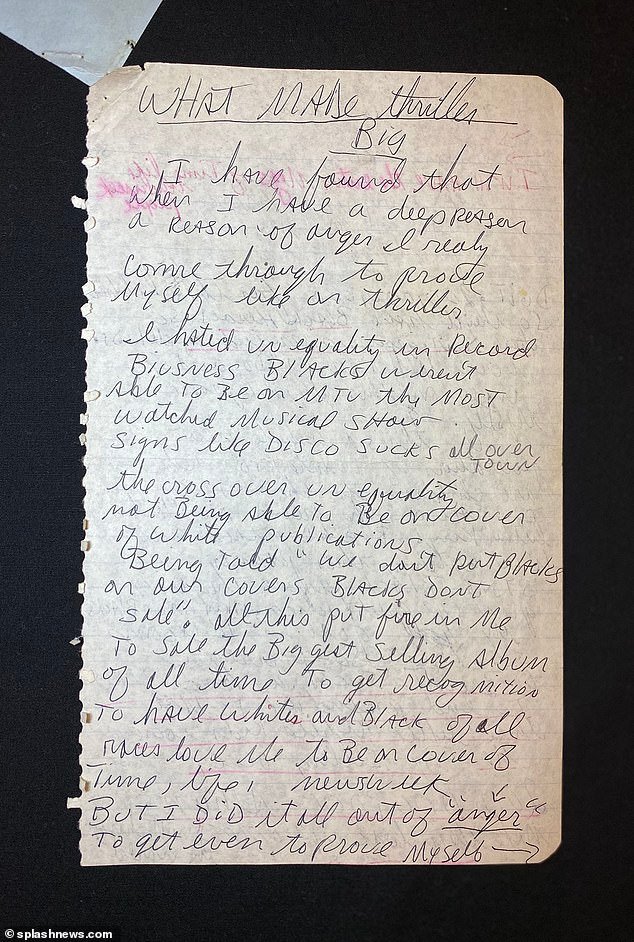 WHAT MADE thriller
Big
I have found that
when I have a deep REASON
a REASON of anger I realy
come through to prove
Myself like on thriller
I hated un equality in Record
Biusness Blacks wernt
Able To Be on MTV the Most
watched Musical show.
Signs like DISCO SUCKS all over
TOWN
the cross over un equality
not Being Able to Be on cover
of White publications
Being Told "We don't put Blacks
on our covers Blacks Dont
Sale". all this put fire in Me
To Sale the Biggist Selling Album
of all time To get recognition
To have whites and Black of all
races love Me to Be on cover of
Time, life, newsweek
But I DiD it all out of "anger"
To get even to prove Myself →
© splashnews.com